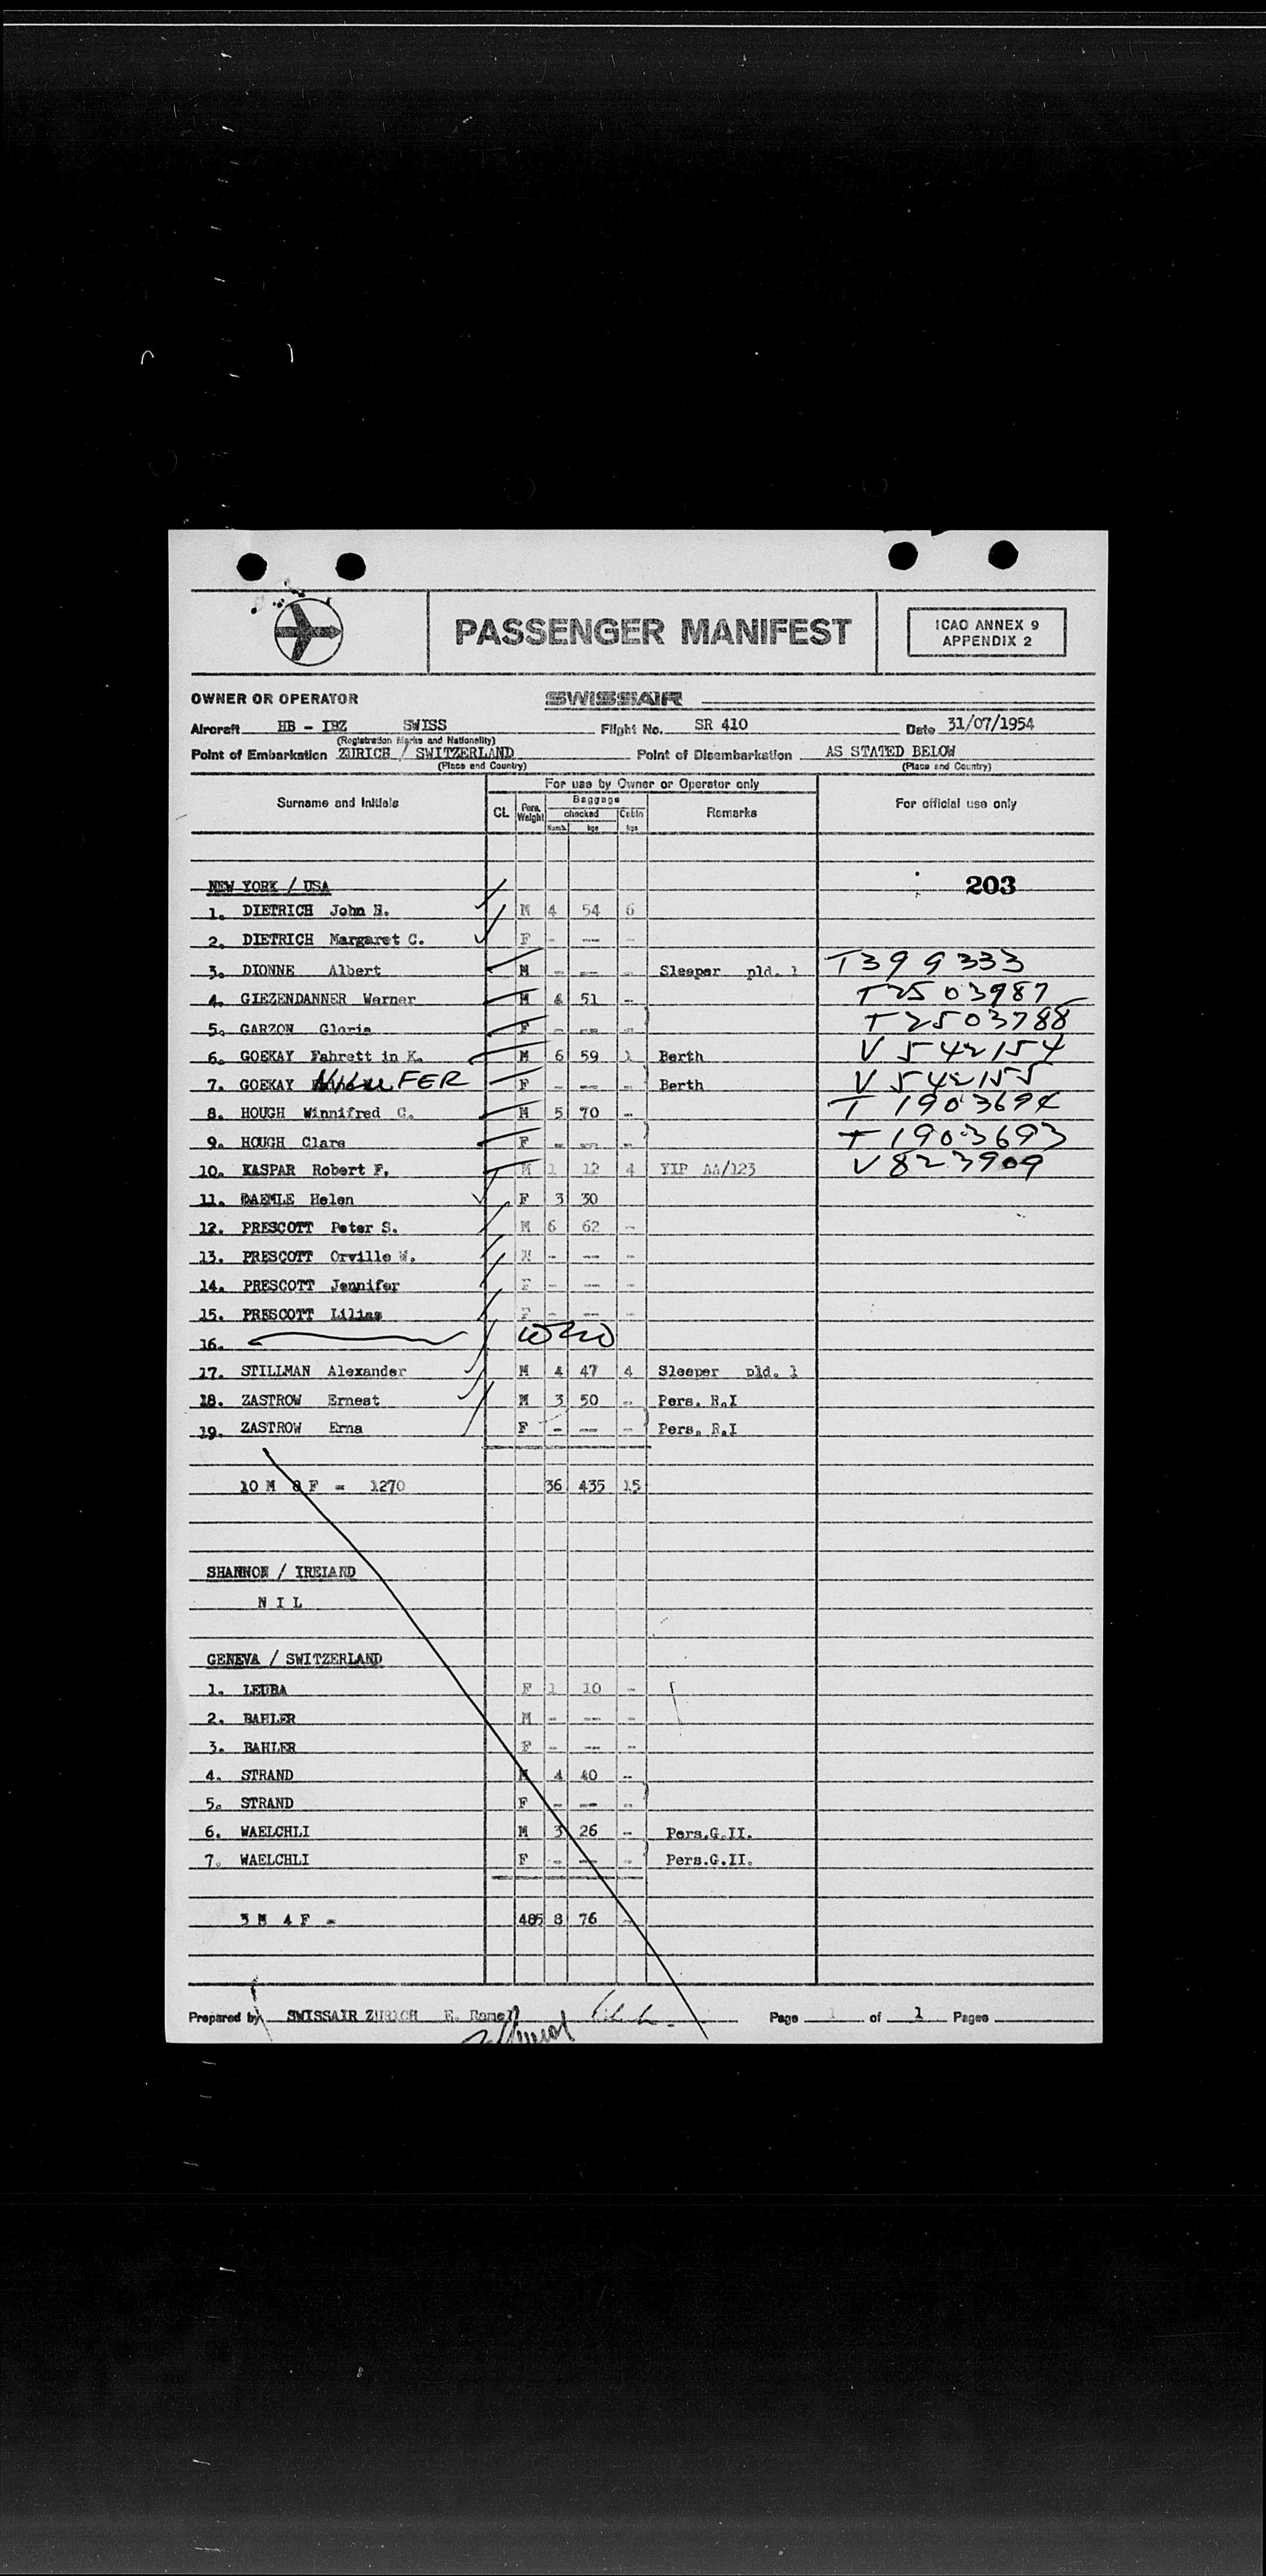 PASSENGER MANIFEST
ICAO ANNEX 9
APPENDIX 2
OWNER OR OPERATOR SWISSAIR
Aircraft HB - IBZ SWISS Flight No. SR 410 Date 31/07/1954
(Registration Marks and Nationality)
Point of Embarkation ZURICH / SWITZERLAND Point of Disembarkation AS STATED BELOW
(Place and Country) (Place and Country)
For use by Owner or Operator only
Surname and Initials CL. Pers. Weight Baggage checked Numb. kgs Cabin kgs Remarks For official use only
NEW YORK / USA 203
1. DIETRICH John H. M 4 54 6
2. DIETRICH Margaret C. F - -- -
3. DIONNE Albert M - -- - Sleeper pld. 1 T399333
4. GIEZENDANNER Werner M 4 51 - T2503987
5. GARZON Gloria F - -- - T2503788
6. GOEKAY Fahrett in K. M 6 59 1 Berth V 542154
7. GOEKAY FER F - -- - Berth V 542155
8. HOUGH Winnifred C. M 5 70 - T 1903694
9. HOUGH Clara F - -- - T 1903693
10. KASPAR Robert F. M 1 12 4 YIP AA/123 V823909
11. DAEMLE Helen F 3 30
12. PRESCOTT Peter S. M 6 62 -
13. PRESCOTT Orville W. M - -- -
14. PRESCOTT Jennifer F - -- -
15. PRESCOTT Lilias F - -- -
16.
17. STILLMAN Alexander M 4 47 4 Sleeper pld. 1
18. ZASTROW Ernest M 3 50 - Pers. R.I
19. ZASTROW Erna F - -- - Pers. R.I
10 M 8 F = 1270 36 435 15
SHANNON / IRELAND
N I L
GENEVA / SWITZERLAND
1. LEUBA F 1 10 -
2. BAHLER M - -- -
3. BAHLER F - -- -
4. STRAND M 4 40 -
5. STRAND F - -- -
6. WAELCHLI M 3 26 - Pers.G.II.
7. WAELCHLI F - -- - Pers.G.II.
3 M 4 F = 485 8 76 -
Prepared by SWISSAIR ZURICH Page 1 of 1 Pages